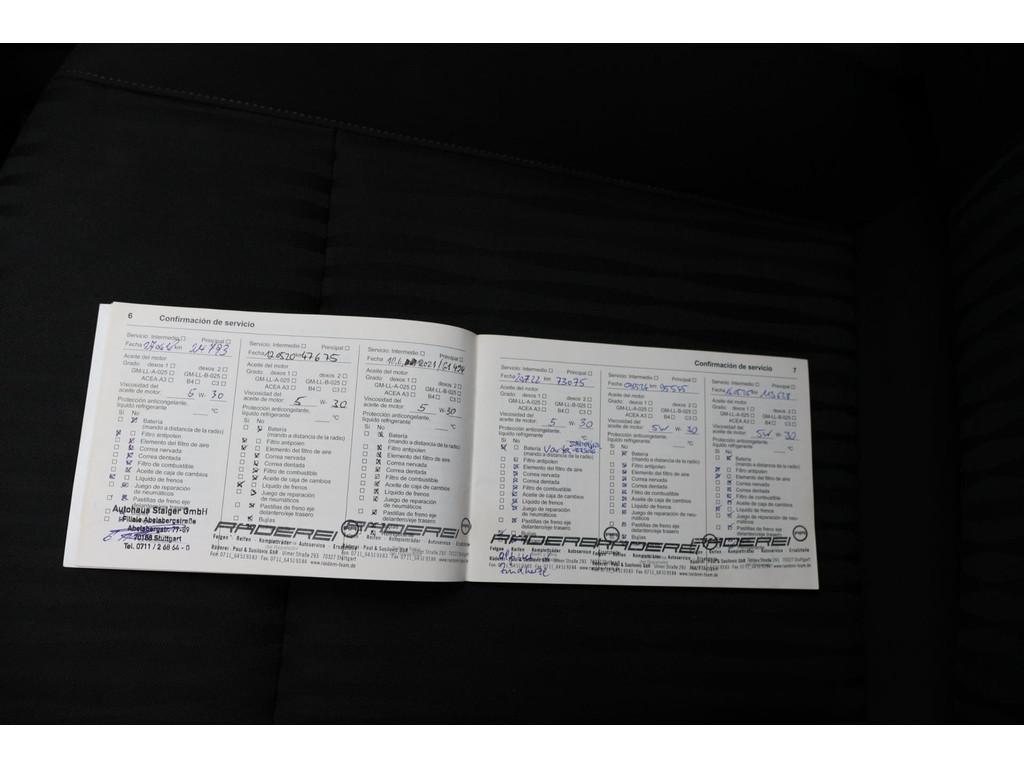 6 Confirmación de servicio
Servicio: Intermedio Principal
Fecha km 24793
Aceite del motor
Grado: dexos 1 dexos 2
GM-LL-A-025 GM-LL-B-025
ACEA A3 B4 C3
Viscosidad del
aceite de motor: 5 W- 30
Protección anticongelante,
líquido refrigerante °C
Sí No
Batería
(mando a distancia de la radio)
Filtro antipolen
Elemento del filtro de aire
Correa nervada
Correa dentada
Filtro de combustible
Aceite de caja de cambios
Líquido de frenos
Juego de reparación
de neumáticos
Pastillas de freno eje
Autohaus Staiger GmbH
Filiale Abelsbergstraße
Abelsbergstr. 77-89
70188 Stuttgart
Tel. 0711 / 2 68 64 - 0
Servicio: Intermedio Principal
Fecha 120520 km 47675
Aceite del motor
Grado: dexos 1 dexos 2
GM-LL-A-025 GM-LL-B-025
ACEA A3 B4 C3
Viscosidad del
aceite de motor: 5 W- 30
Protección anticongelante,
líquido refrigerante °C
Sí No
Batería
(mando a distancia de la radio)
Filtro antipolen
Elemento del filtro de aire
Correa nervada
Correa dentada
Filtro de combustible
Aceite de caja de cambios
Líquido de frenos
Juego de reparación
de neumáticos
Pastillas de freno eje
delantero/eje trasero
Bujías
RÄDEREI
Servicio: Intermedio Principal
Fecha 2021
Aceite del motor
Grado: dexos 1 dexos 2
GM-LL-A-025 GM-LL-B-025
ACEA A3 B4 C3
Viscosidad del
aceite de motor: 5 W- 30
Protección anticongelante,
líquido refrigerante °C
Sí No
Batería
(mando a distancia de la radio)
Filtro antipolen
Elemento del filtro de aire
Correa nervada
Correa dentada
Filtro de combustible
Aceite de caja de cambios
Líquido de frenos
Juego de reparación
de neumáticos
Pastillas de freno eje
delantero/eje trasero
RÄDEREI
Confirmación de servicio 7
Servicio: Intermedio Principal
Fecha 20722 km 73075
Aceite del motor
Grado: dexos 1 dexos 2
GM-LL-A-025 GM-LL-B-025
ACEA A3 B4 C3
Viscosidad del
aceite de motor: 5 W- 30
Protección anticongelante,
líquido refrigerante °C
Sí No
Batería
(mando a distancia de la radio)
Filtro antipolen
Elemento del filtro de aire
Correa nervada
Correa dentada
Filtro de combustible
Aceite de caja de cambios
Líquido de frenos
Juego de reparación
de neumáticos
Pastillas de freno eje
delantero/eje trasero
RÄDEREI
Servicio: Intermedio Principal
Fecha km 95555
Aceite del motor
Grado: dexos 1 dexos 2
GM-LL-A-025 GM-LL-B-025
ACEA A3 B4 C3
Viscosidad del
aceite de motor: 5W W- 30
Protección anticongelante,
líquido refrigerante °C
Sí No
Batería
(mando a distancia de la radio)
Filtro antipolen
Elemento del filtro de aire
Correa nervada
Correa dentada
Filtro de combustible
Aceite de caja de cambios
Líquido de frenos
Juego de reparación de neumáticos
Pastillas de freno eje
delantero/eje trasero
Bujías
RÄDEREI
Servicio: Intermedio Principal
Fecha km
Aceite del motor
Grado: dexos 1 dexos 2
GM-LL-A-025 GM-LL-B-025
ACEA A3 B4 C3
Viscosidad del
aceite de motor: 5W W- 30
Protección anticongelante,
líquido refrigerante °C
Sí No
Batería
(mando a distancia de la radio)
Filtro antipolen
Elemento del filtro de aire
Correa nervada
Correa dentada
Filtro de combustible
Aceite de caja de cambios
Líquido de frenos
Juego de reparación
de neumáticos
Pastillas de freno eje
delantero/eje trasero